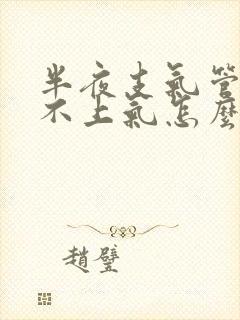 半夜支氣管
不上氣怎麼
趙壁